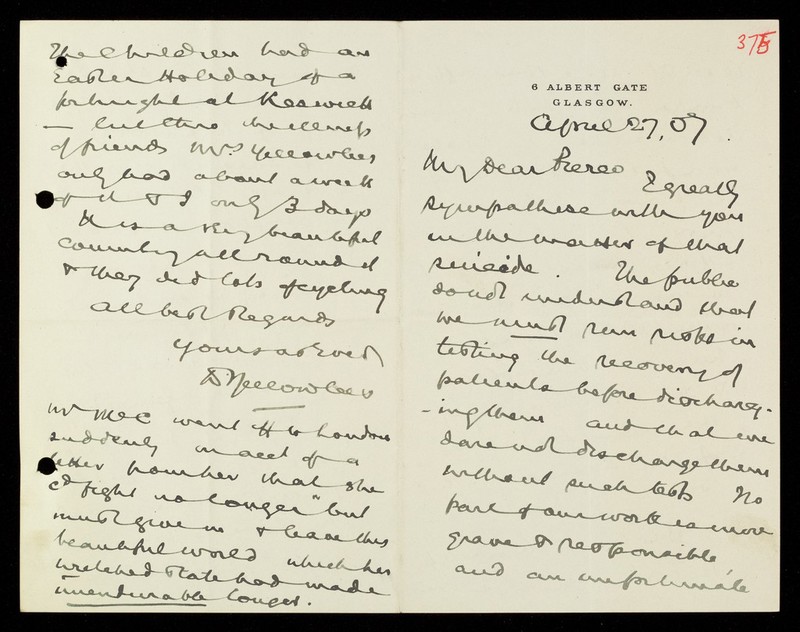 375
6 ALBERT GATE
GLASGOW.
April 27, 07.
My Dear
I greatly
sympathise with you
in the matter of that
suicide. The public
do not understand that
we must run risks in
testing the recovery of
patients before discharg-
-ing them and that we
dare not discharge them
without such tests No
part of our work is more
grave & responsible
and an unfortunate
The Children had an
Easter Holiday of a
fortnight at Keswick
— but thro the illness
of friends Mrs Yellowlees
only had about a week
of it & I only 3 days
It is a very beautiful
country all round it
& they did lots of cycling
All best Regards
Yours as Ever
D Yellowlees
went to London
suddenly on acct of a
letter from her that she
"cd fight no longer" but
must give in & leave this
beautiful world which her
wretched state had made
unendurable longer.